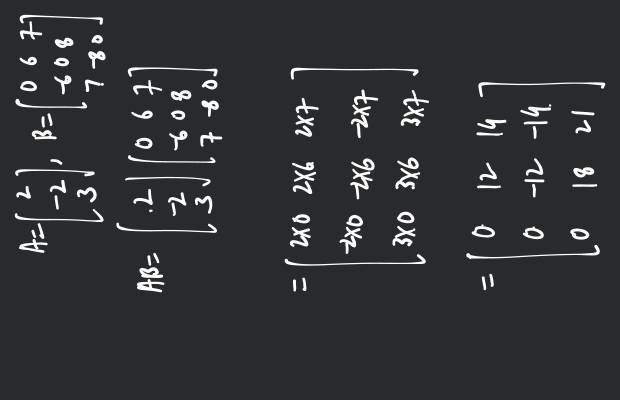 A = [ 2 -2 3 ], B = [ 0 6 7
-6 0 8
7 -8 0 ]
AB = [ 2 -2 3 ] [ 0 6 7
-6 0 8
7 -8 0 ]
= [ 2x0 2x6 2x7
-2x0 -2x6 -2x7
3x0 3x6 3x7 ]
= [ 0 12 14
0 -12 -14
0 18 21 ]